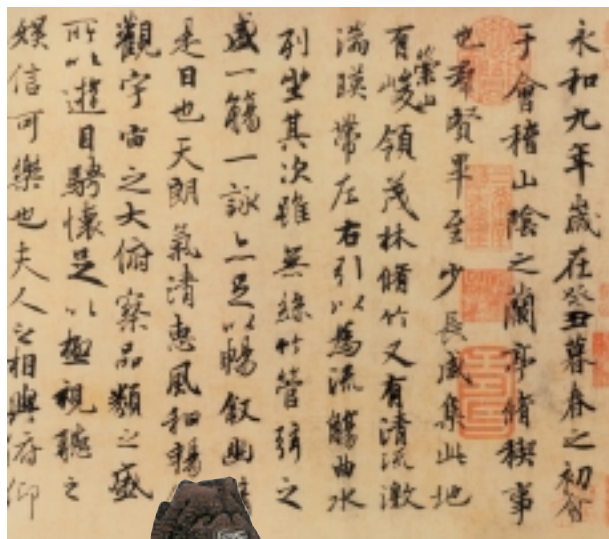 永和九年歲在癸丑暮春之初會
于會稽山陰之蘭亭脩稧事
也羣賢畢至少長咸集此地
有崇山峻領茂林脩竹又有清流激
湍暎帶左右引以為流觴曲水
列坐其次雖無絲竹管弦之
盛一觴一詠亦足以暢敘幽
是日也天朗氣清惠風和暢
觀宇宙之大俯察品類之盛
所以遊目騁懷足以極視聽之
娛信可樂也夫人之相與俯仰